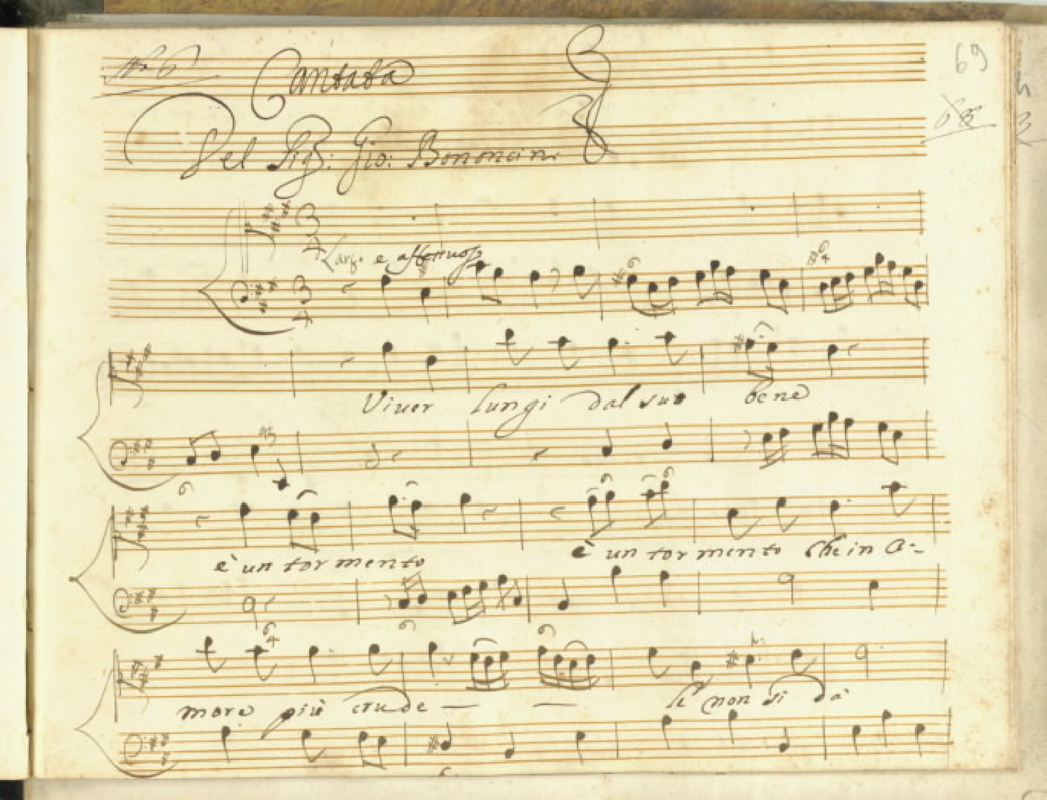 No 6 Cantata 69
Del Sigr: Gio: Bononcini 68
Largo e affettuoso
Viver lungi dal suo bene
è un tormento è un tormento che in A-
more più crude le non si dà